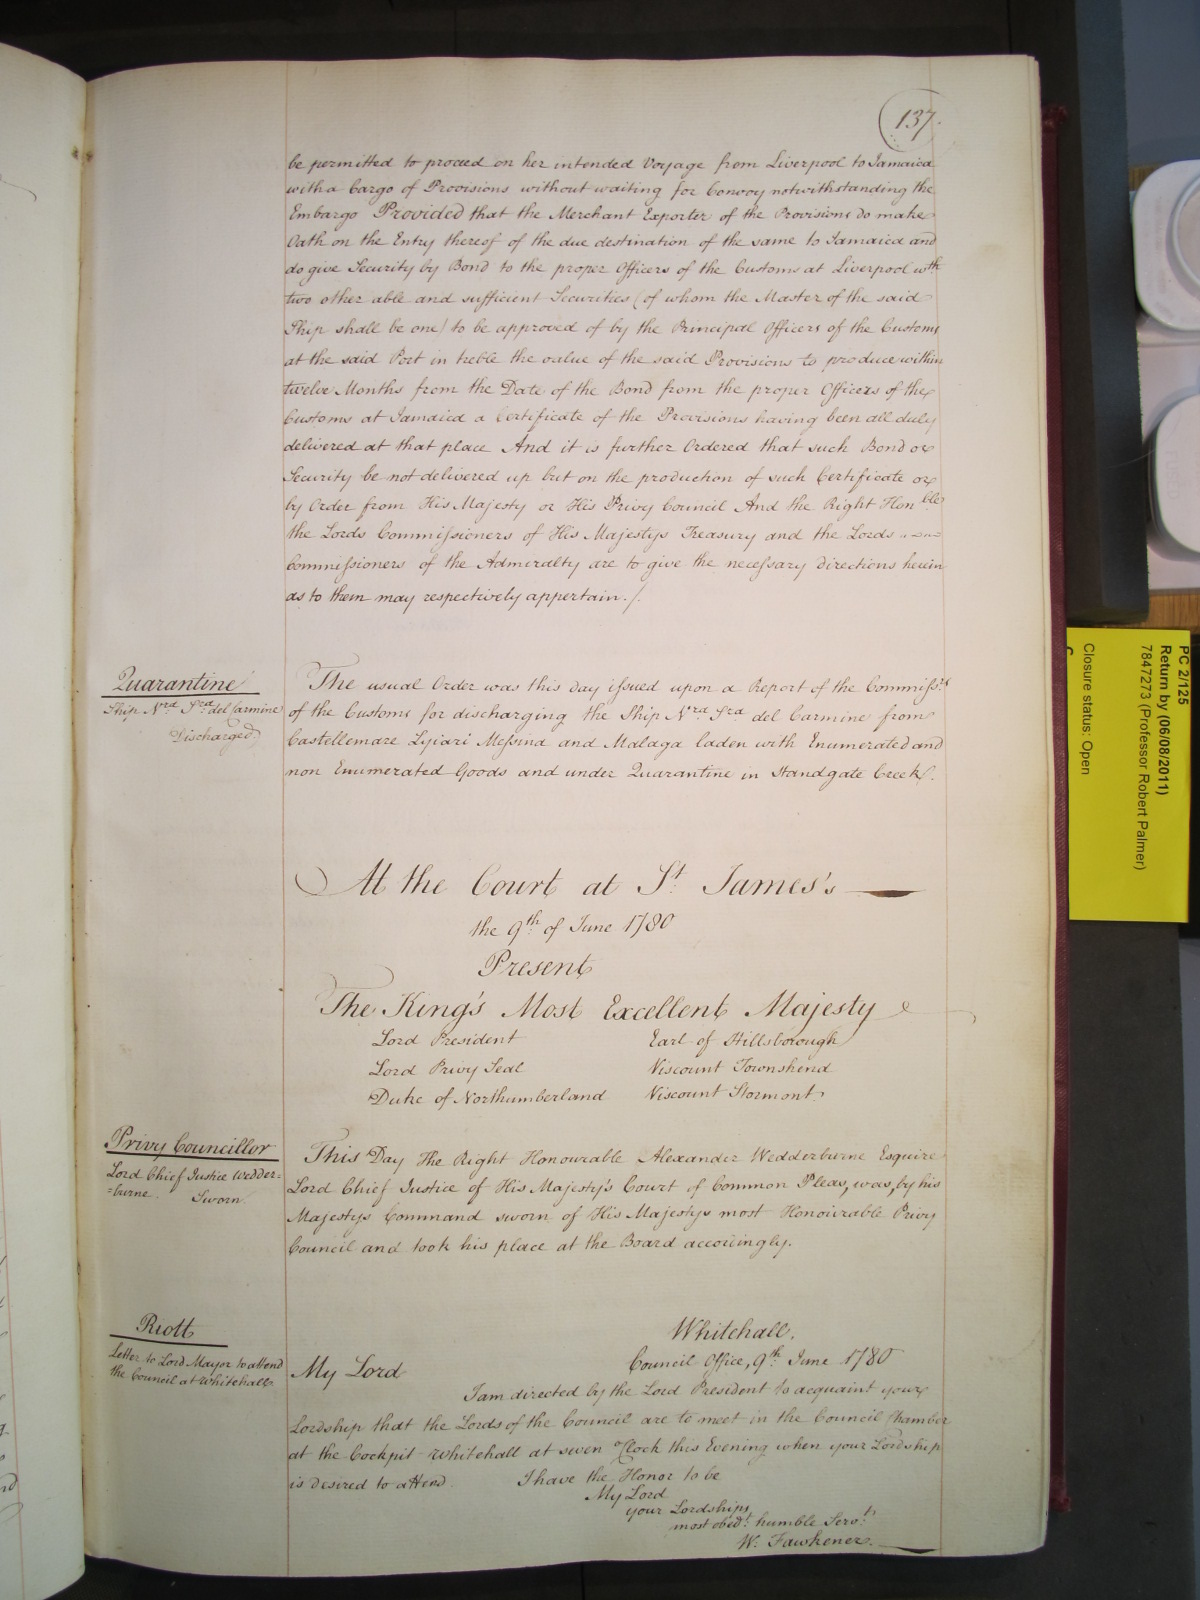 137.
be permitted to proceed on her intended Voyage from Liverpool to Jamaica
with a Cargo of Provisions without waiting for Convoy notwithstanding the
Embargo Provided that the Merchant Exporter of the Provisions do make
Oath on the Entry thereof of the due destination of the same to Jamaica and
do give Security by Bond to the proper Officers of the Customs at Liverpool wth
two other able and sufficient Securities (of whom the Master of the said
Ship shall be one) to be approved of by the Principal Officers of the Customs
at the said Port in treble the value of the said Provisions to produce within
twelve Months from the Date of the Bond from the proper Officers of the
Customs at Jamaica a Certificate of the Provisions having been all duly
delivered at that place And it is further Ordered that such Bond or
Security be not delivered up but on the production of such Certificate or
by Order from His Majesty or His Privy Council And the Right Honble
the Lords Commissioners of His Majestys Treasury and the Lords
Commissioners of the Admiralty are to give the necessary directions herein
as to them may respectively appertain./.
Quarantine
Ship Nra Sra del Carmine
Discharged
The usual Order was this day issued upon a Report of the Commissrs
of the Customs for discharging the Ship Nra Sra del Carmine from
Castellemare Lyiari Messina and Malaga laden with Enumerated and
non Enumerated Goods and under Quarantine in Standgate Creek.
At the Court at St. James's
the 9th of June 1780
Present
The King's Most Excellent Majesty
Lord President Earl of Hillsborough
Lord Privy Seal Viscount Townshend
Duke of Northumberland Viscount Stormont.
Privy Councillor
Lord Chief Justice Wedder=
=burne. Sworn.
This Day The Right Honourable Alexander Wedderburne Esquire
Lord Chief Justice of His Majesty's Court of Common Pleas, was, by his
Majestys Command sworn of His Majestys most Honourable Privy
Council and took his place at the Board accordingly.
Riott
Letter to Lord Mayor to attend
the Council at Whitehall.
Whitehall,
Council Office, 9th June 1780
My Lord
I am directed by the Lord President to acquaint your
Lordship that the Lords of the Council are to meet in the Council Chamber
at the Cockpit Whitehall at seven o'Clock this Evening when your Lordship
is desired to attend. I have the Honor to be
My Lord
your Lordships
most obedt. humble Servt.
W. Fawkener.
PC 2/125
Return by (06/08/2011)
7847273 (Professor Robert Palmer)
Closure status: Open